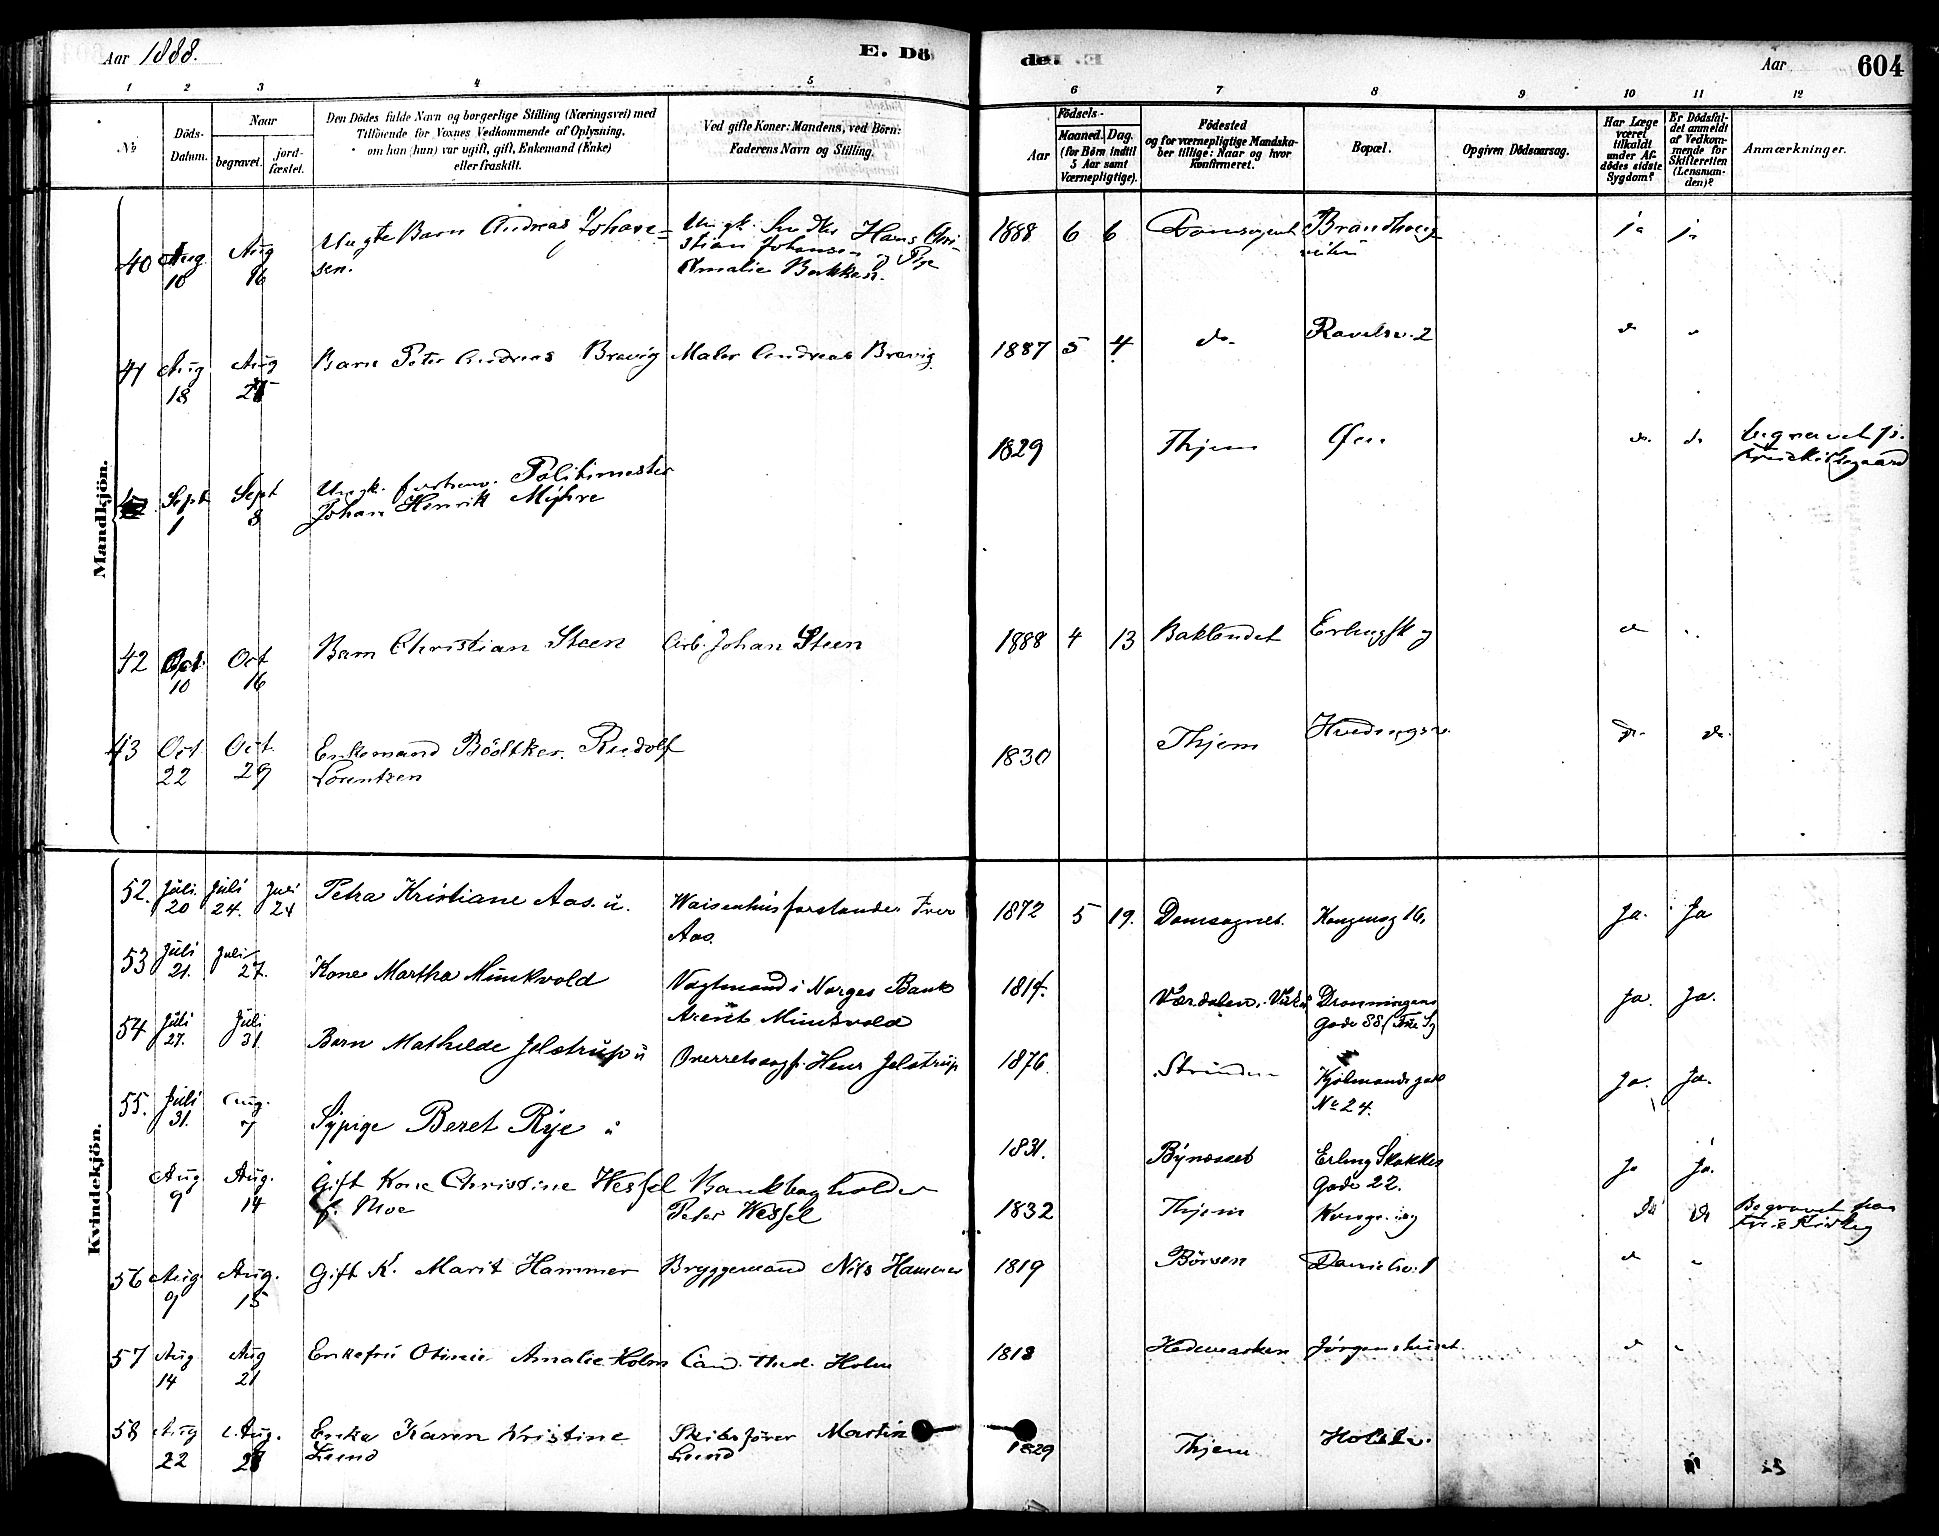 Aar 1888.
E. Dö
de.
Aar
604
1 2 3 4 5 6 7 8 9 10 11 12
№
Döds-
Datum.
Naar
begravet.
jord-
fæstet.
Den Dödes fulde Navn og borgerlige Stilling (Næringsvei) med
Tilföiende for Voxnes Vedkommende af Oplysning,
om han (hun) var ugift, gift, Enkemand (Enke)
eller fraskilt.
Ved gifte Koner: Mandens, ved Börn:
Faderens Navn og Stilling.
Aar
Födsels-
Maaned. Dag.
(for Börn indtil
5 Aar samt
Værnepligtige).
Födested
og for værnepligtige Mandska-
ber tillige: Naar og hvor
konfirmeret.
Bopæl.
Opgiven Dödsaarsag.
Har Læge
været
tilkaldt
under Af-
dödes sidste
Sygdom?
Er Dödsfal-
det anmeldt
af Vedkom-
mende for
Skifteretten
(Lensman-
den)?
Anmærkninger.
Mandkjön.
40 Aug 10 Aug 16 Uægte Barn Andreas Johan-
sen. Ungk. Hans Chri-
stian Johansen og Pige
Amalie Bakken. 1888 6 6 Domsognet ja ja
41 Aug 18 Aug Barn Peter Andreas Brevig Maler Andreas Brevig. 1887 5 4 do Ravelsv. 2 do
Sept 1 Sept 8 Ungk. forhenv. Politimester
Johan Henrik Myhre 1829 Thjem Øen do do begravet p.
42 Oct. 10 Oct 16 Barn Christian Steen Arb. Johan Steen 1888 4 13 Baklandet do
43 Oct. 22 Oct. 29 Enkemand Bödtker Rudolf
Lorentzen 1830 Thjem do do
Kvindekjön.
52. Juli. 20 Juli 24. Juli 24 Petra Kristiane Aas. u. Waisenhusforstander Iver
Aas. 1872 5 19. Domsognet. Kongensg 16. Ja. Ja
53 Juli 21. Juli 27. Kone Martha Munkvold Vagtmand i Norges Bank
Arent Munkvold 1814. Værdalen. Dronningens
Gade Ja. Ja.
54 Juli 27. Juli 31 Barn Mathilde Jelstrup u Overretssagf. Henr Jelstrup 1876. Strinden Kjölmandsgade
No 24. Ja. Ja.
55. Juli 31. Aug. 7 Sypige Beret Rye u 1831. Bynæsset Erling Skakkes
Gade 22. Ja Ja.
Aug 9 Aug. 14 Gift Kone Christine Wessel
f. Moe Bankbogholder
Peter Wessel 1832 Thjem Kongensg do do Begravet paa
56 Aug. 9 Aug. 15 Gift K. Marit Hammer Bryggemand Nils Hammer 1819 Börsen do
57 Aug 14 Aug 21 Enkefru Otinie Amalie Holm Cand. theol. Holm 1818 Hedemarken Jörgenshuset do
58 Aug 22 Aug. Enke Karen Kristine
Lund Skibsförer Martin
Lund 1829 Thjem